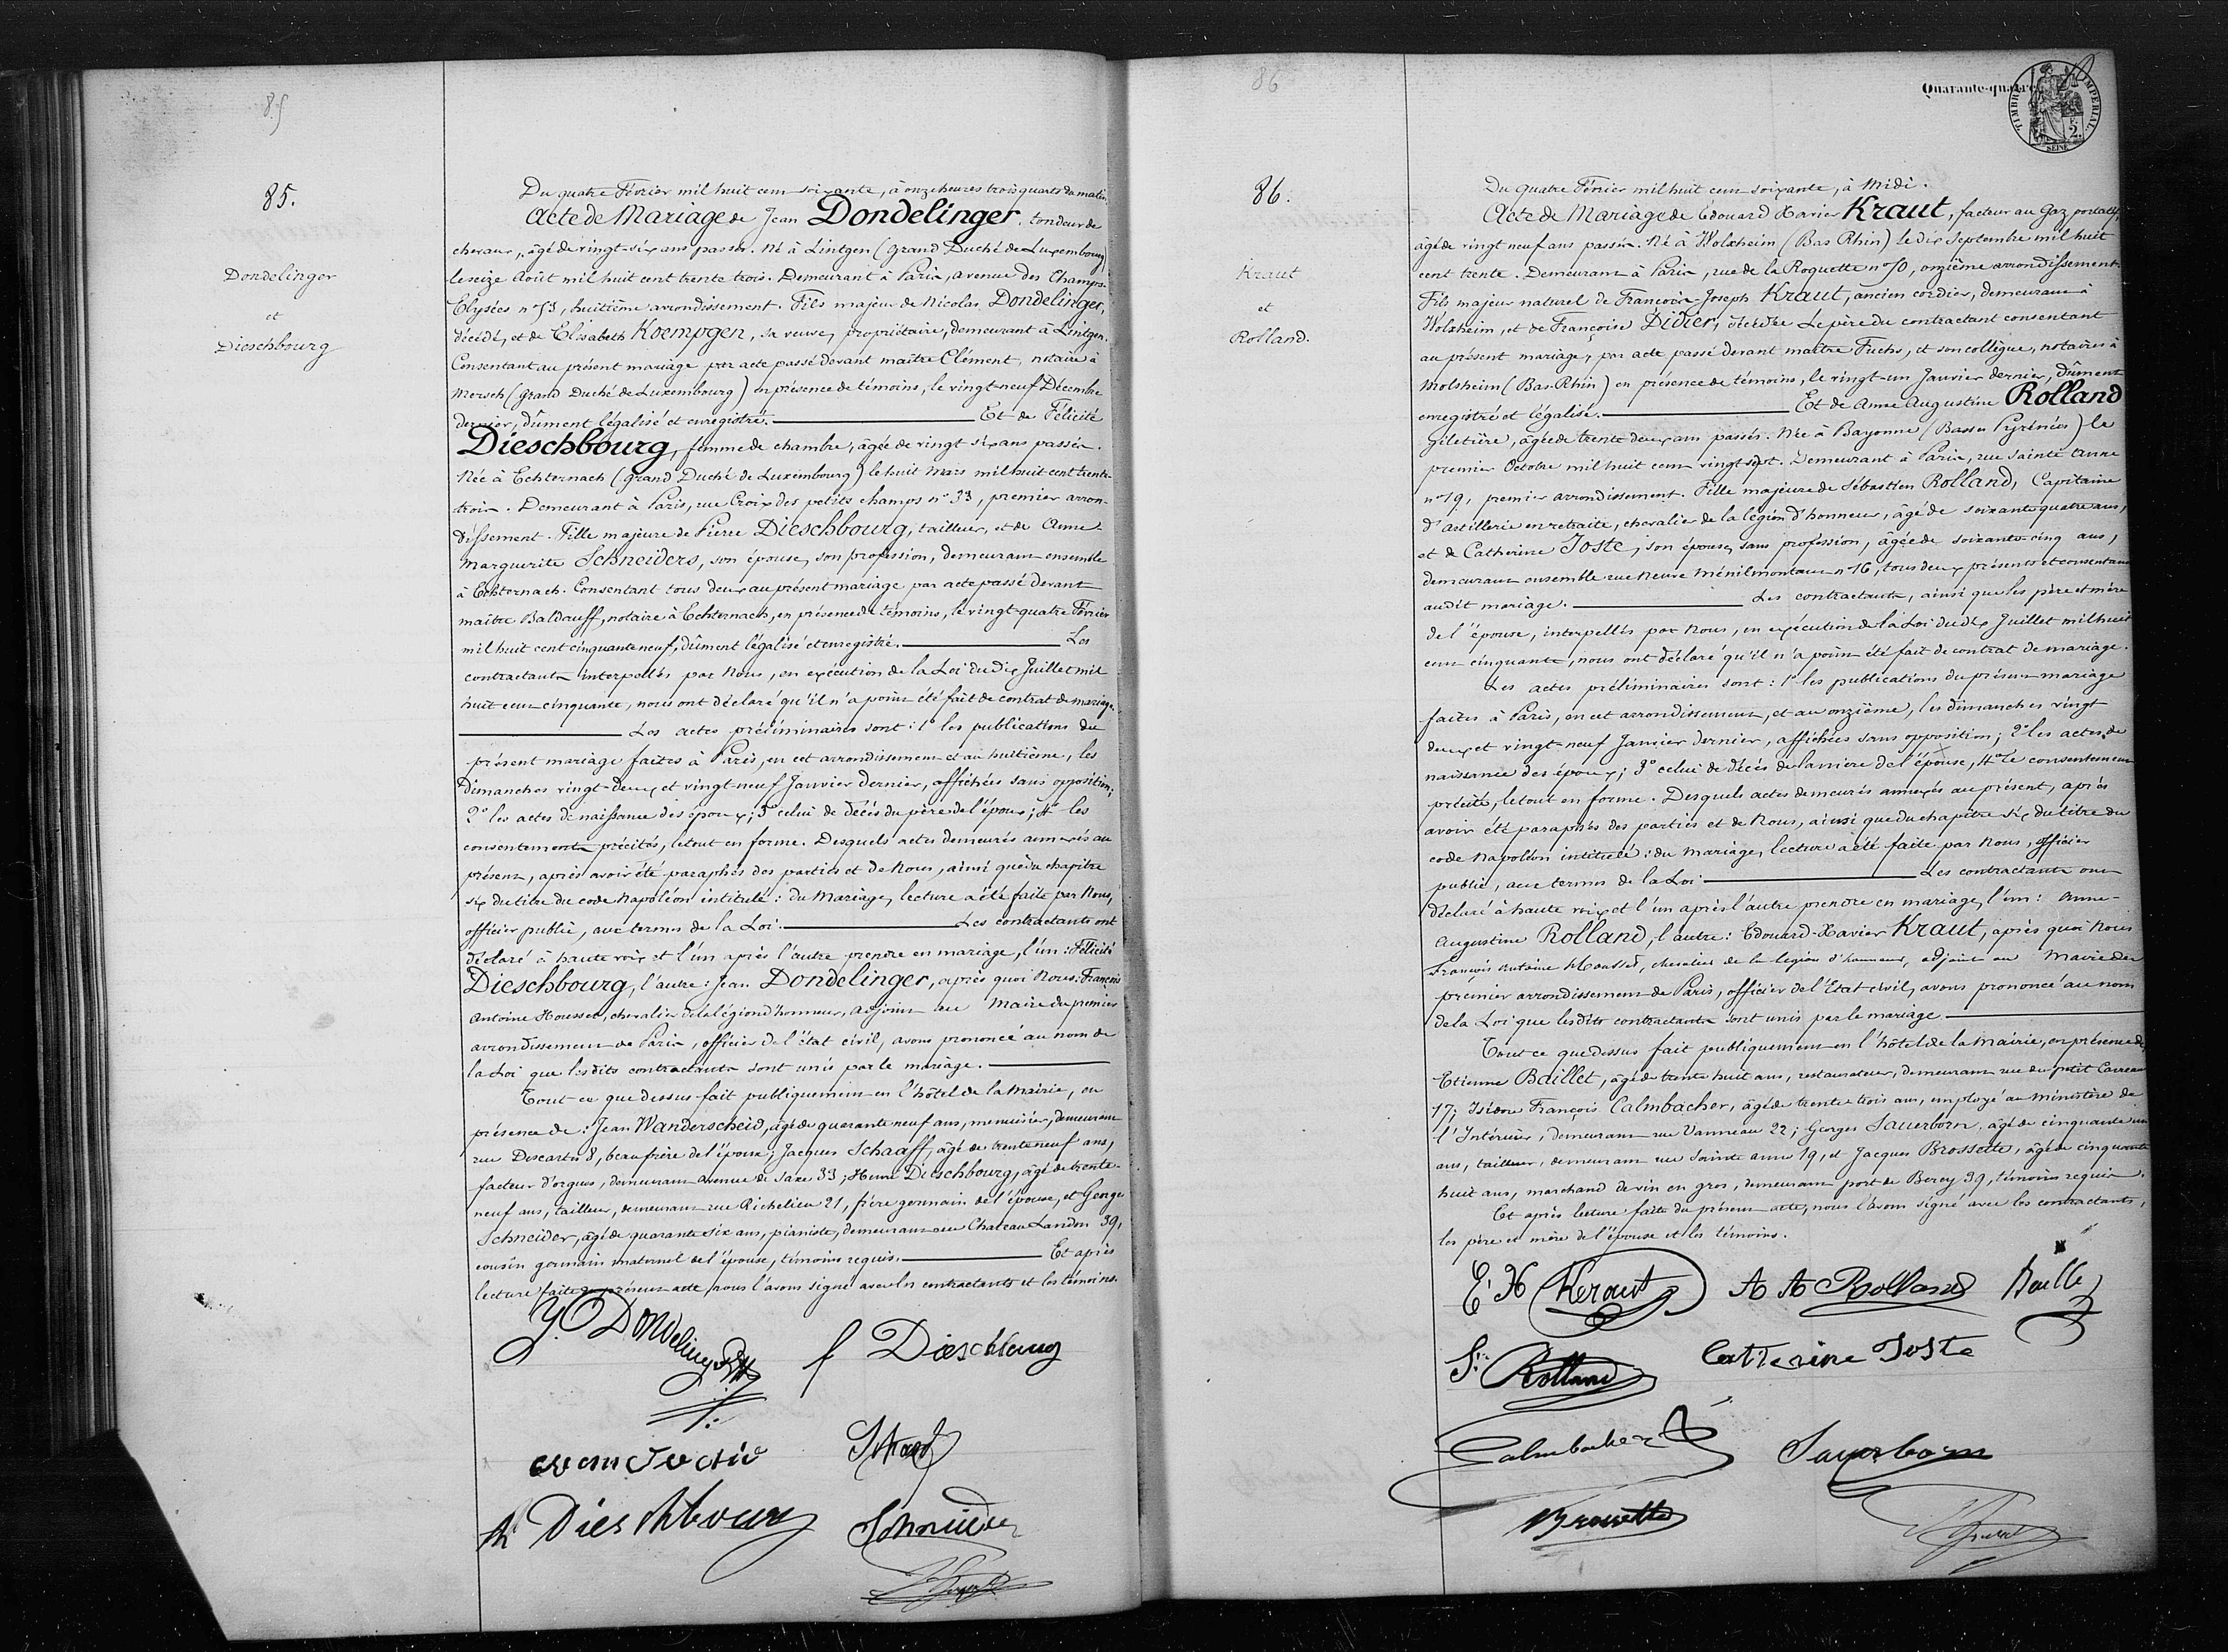 85
85.
Dondelinger
et
Dieschbourg
Du quatre Février mil huit cent soixante, à onze heures trois quarts du matin.
Acte de Mariage de Jean Dondelinger, tondeur de
chevaux, âgé de vingt-six ans passés. Né à Lintgen (Grand Duché de Luxembourg)
le seize Août mil huit cent trente trois. Demeurant à Paris, avenue des Champs-
Elysées n° 53, huitième arrondissement. Fils majeur de Nicolas Dondelinger,
décédé, et de Elisabeth Koempgen, sa veuve, propriétaire, demeurant à Lintgen.
Consentant au présent mariage par acte passé devant maître Clément, notaire à
Mersch (Grand Duché de Luxembourg) en présence de témoins, le vingt-neuf Décembre
dernier, dûment légalisé et enregistré. Et de Félicité
Dieschbourg, femme de chambre, âgée de vingt six ans passés.
Née à Echternach (Grand Duché de Luxembourg) le huit Mars mil huit cent trente-
trois. Demeurant à Paris, rue Croix des petits champs n° 33, premier arron-
dissement. Fille majeure de Pierre Dieschbourg, tailleur, et de Anne
Marguerite Schneiders, son épouse, son profession, demeurant ensemble
à Echternach. Consentant tous deux au présent mariage par acte passé devant
maître Baldauff, notaire à Echternach, en présence de témoins, le vingt-quatre Février
mil huit cent cinquante neuf, dûment légalisé et enregistré. Les
contractants interpellés par Nous, en exécution de la Loi du dix Juillet mil
huit cent cinquante, nous ont déclaré qu'il n'a point été fait de contrat de mariage.
Les actes préliminaires sont : 1° les publications du
présent mariage faites à Paris, en cet arrondissement et au huitième, les
dimanches vingt-deux et vingt-neuf Janvier dernier, affichées sans opposition;
2° les actes de naissance des époux; 3° celui de décès du père de l'époux; 4° les
consentements précités, le tout en forme. Desquels actes demeurés annexés au
présent, après avoir été paraphés des parties et de Nous, ainsi que du chapitre
six du titre du code Napoléon intitulé : du Mariage, lecture a été faite par Nous,
officier public, aux termes de la Loi. Les contractants ont
déclaré à haute voix et l'un après l'autre prendre en mariage, l'un : Félicité
Dieschbourg, l'autre : Jean Dondelinger, après quoi Nous, François
Antoine Housset, chevalier de la légion d'honneur, adjoint au Maire du premier
arrondissement de Paris, officier de l'état civil, avons prononcé au nom de
la Loi que lesdits contractants sont unis par le mariage.
Tout ce que dessus fait publiquement en l'hôtel de la Mairie, en
présence de : Jean Wanderscheid, âgé de quarante neuf ans, menuisier, demeurant
rue Descartes 8, beau frère de l'épouse; Jacques Schaaff, âgé de trente neuf ans,
facteur d'orgues, demeurant avenue de Saxe 33; Henri Dieschbourg, âgé de trente-
neuf ans, tailleur, demeurant rue Richelieu 21, frère germain de l'épouse, et George
Schneider, âgé de quarante six ans, pianiste, demeurant rue Chateau Landon 39,
cousin germain maternel de l'épouse, témoins requis. Et après
lecture faite du présent acte, nous l'avons signé avec les contractants et les témoins.
J. Dondelinger
f Dieschbourg
Schaaff
h Dieschbourg
Schneider
86
86.
Kraut
et
Rolland.
Quarante-quatre
TIMBRE IMPERIAL
2
SEINE
Du quatre Février mil huit cent soixante, à Midi.
Acte de Mariage de Edouard Xavier Kraut, facteur au Gaz portatif,
âgé de vingt neuf ans passés. Né à Wolxheim (Bas Rhin) le dix Septembre mil huit
cent trente. Demeurant à Paris, rue de la Roquette n° 70, onzième arrondissement.
Fils majeur naturel de François Joseph Kraut, ancien cordier, demeurant à
Wolxheim, et de Françoise Didier, décédée. Le père du contractant consentant
au présent mariage, par acte passé devant maître Fuchs, et son collègue, notaires à
Molsheim (Bas-Rhin) en présence de témoins, le vingt-un Janvier dernier, dûment
enregistré et légalisé. Et de Anne Augustine Rolland
giletière, âgée de trente deux ans passés. Née à Bayonne (Basses Pyrénées) le
premier Octobre mil huit cent vingt sept. Demeurant à Paris, rue Sainte Anne
n° 19, premier arrondissement. Fille majeure de Sébastien Rolland, Capitaine
d'artillerie en retraite, chevalier de la légion d'honneur, âgé de soixante quatre ans,
et de Catherine Joste, son épouse, sans profession, âgée de soixante-cinq ans,
demeurant ensemble rue Neuve Ménilmontant n° 16, tous deux présents et consentant
audit mariage. Les contractants, ainsi que les père et mère
de l'épouse, interpellés par Nous, en exécution de la Loi du dix Juillet mil huit
cent cinquante, nous ont déclaré qu'il n'a point été fait de contrat de mariage.
Les actes préliminaires sont : 1° les publications du présent mariage
faites à Paris, en cet arrondissement, et au onzième, les dimanches vingt
deux et vingt-neuf Janvier dernier, affichées sans opposition; 2° les actes de
naissance des époux; 3° celui de décès de la mère de l'épouse, 4° le consentement
précité, le tout en forme. Desquels actes demeurés annexés au présent, après
avoir été paraphés des parties et de Nous, ainsi que du chapitre six du titre du
code Napoléon intitulé : du Mariage, lecture a été faite par Nous, officier
public, aux termes de la Loi Les contractants ont
déclaré à haute voix et l'un après l'autre prendre en mariage, l'un : Anne-
Augustine Rolland, l'autre : Edouard-Xavier Kraut, après quoi Nous
François Antoine Housset, chevalier de la légion d'honneur, adjoint au Maire du
premier arrondissement de Paris, officier de l'Etat civil, avons prononcé au nom
de la Loi que lesdits contractants sont unis par le mariage
Tout ce que dessus fait publiquement en l'hôtel de la Mairie, en présence de
Etienne Baillet, âgé de trente huit ans, restaurateur, demeurant rue du petit Carreau
17; Isidore François Calmbacher, âgé de trente trois ans, employé au ministère de
l'Intérieur, demeurant rue Vanneau 22; Georges Sauerborn, âgé de cinquante un
ans, tailleur, demeurant rue Sainte anne 19, et Jacques Brossette, âgé de cinquante
huit ans, marchand de vin en gros, demeurant port de Bercy 39, témoins requis.
Et après lecture faite du présent acte, nous l'avons signé avec les contractants,
les père et mère de l'épouse et les témoins.
E. X Kraut
A A Rolland
Baillet
Sn Rolland
Catherine Joste
Calmbacher
Sauerborn
Brossette